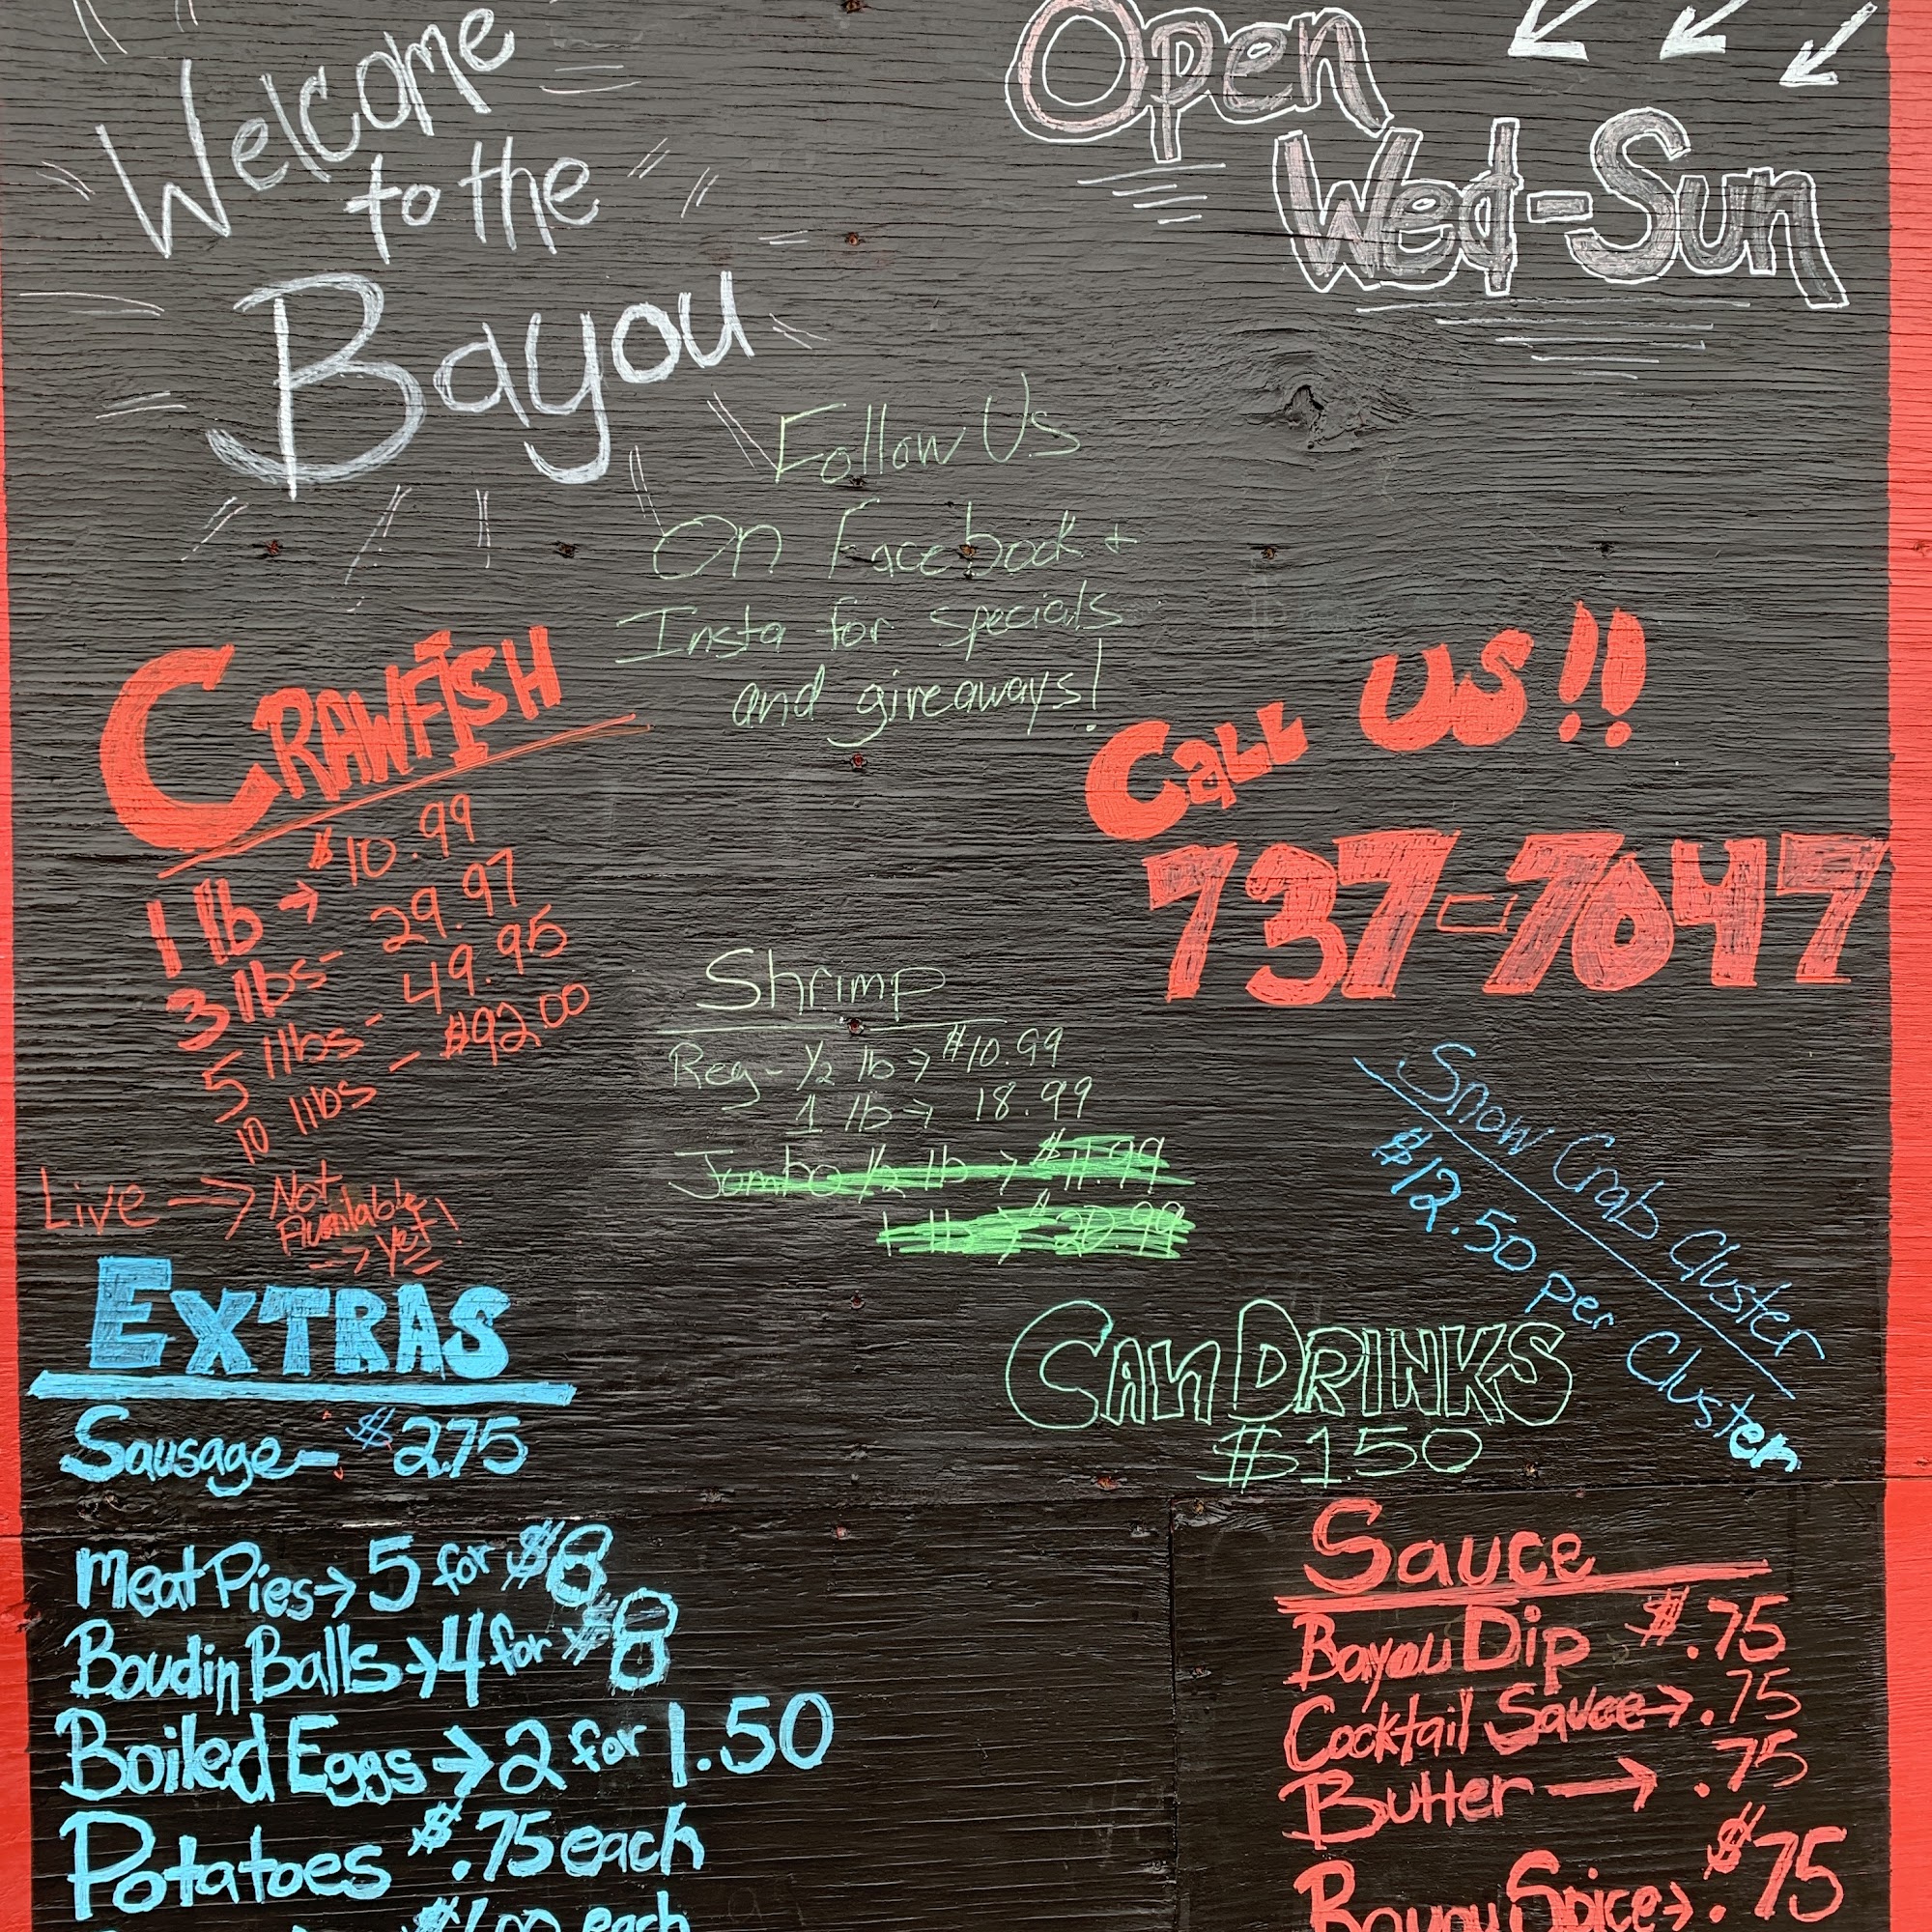 Welcome
to the
Bayou
Open
Wed-Sun
Follow Us
On Facebook +
Insta for specials
and giveaways!
CRAWFISH
1 lb → $10.99
3 lbs - 29.97
5 lbs - 49.95
10 lbs - $92.00
Live → Not
Available
→ Yet!
Call US!!
737-7047
Shrimp
Reg - 1/2 lb → $10.99
1 lb → 18.99
Jumbo 1/2 lb → $11.99
1 lb → $20.99
Snow Crab Cluster
$12.50 per Cluster
EXTRAS
Sausage - $2.75
Meat Pies → 5 for $8
Boudin Balls → 4 for $8
Boiled Eggs → 2 for 1.50
Potatoes $.75 each
$1.00 each
CAN DRINKS
$1.50
Sauce
Bayou Dip $.75
Cocktail Sauce → .75
Butter → .75
Bayou Spice → $.75